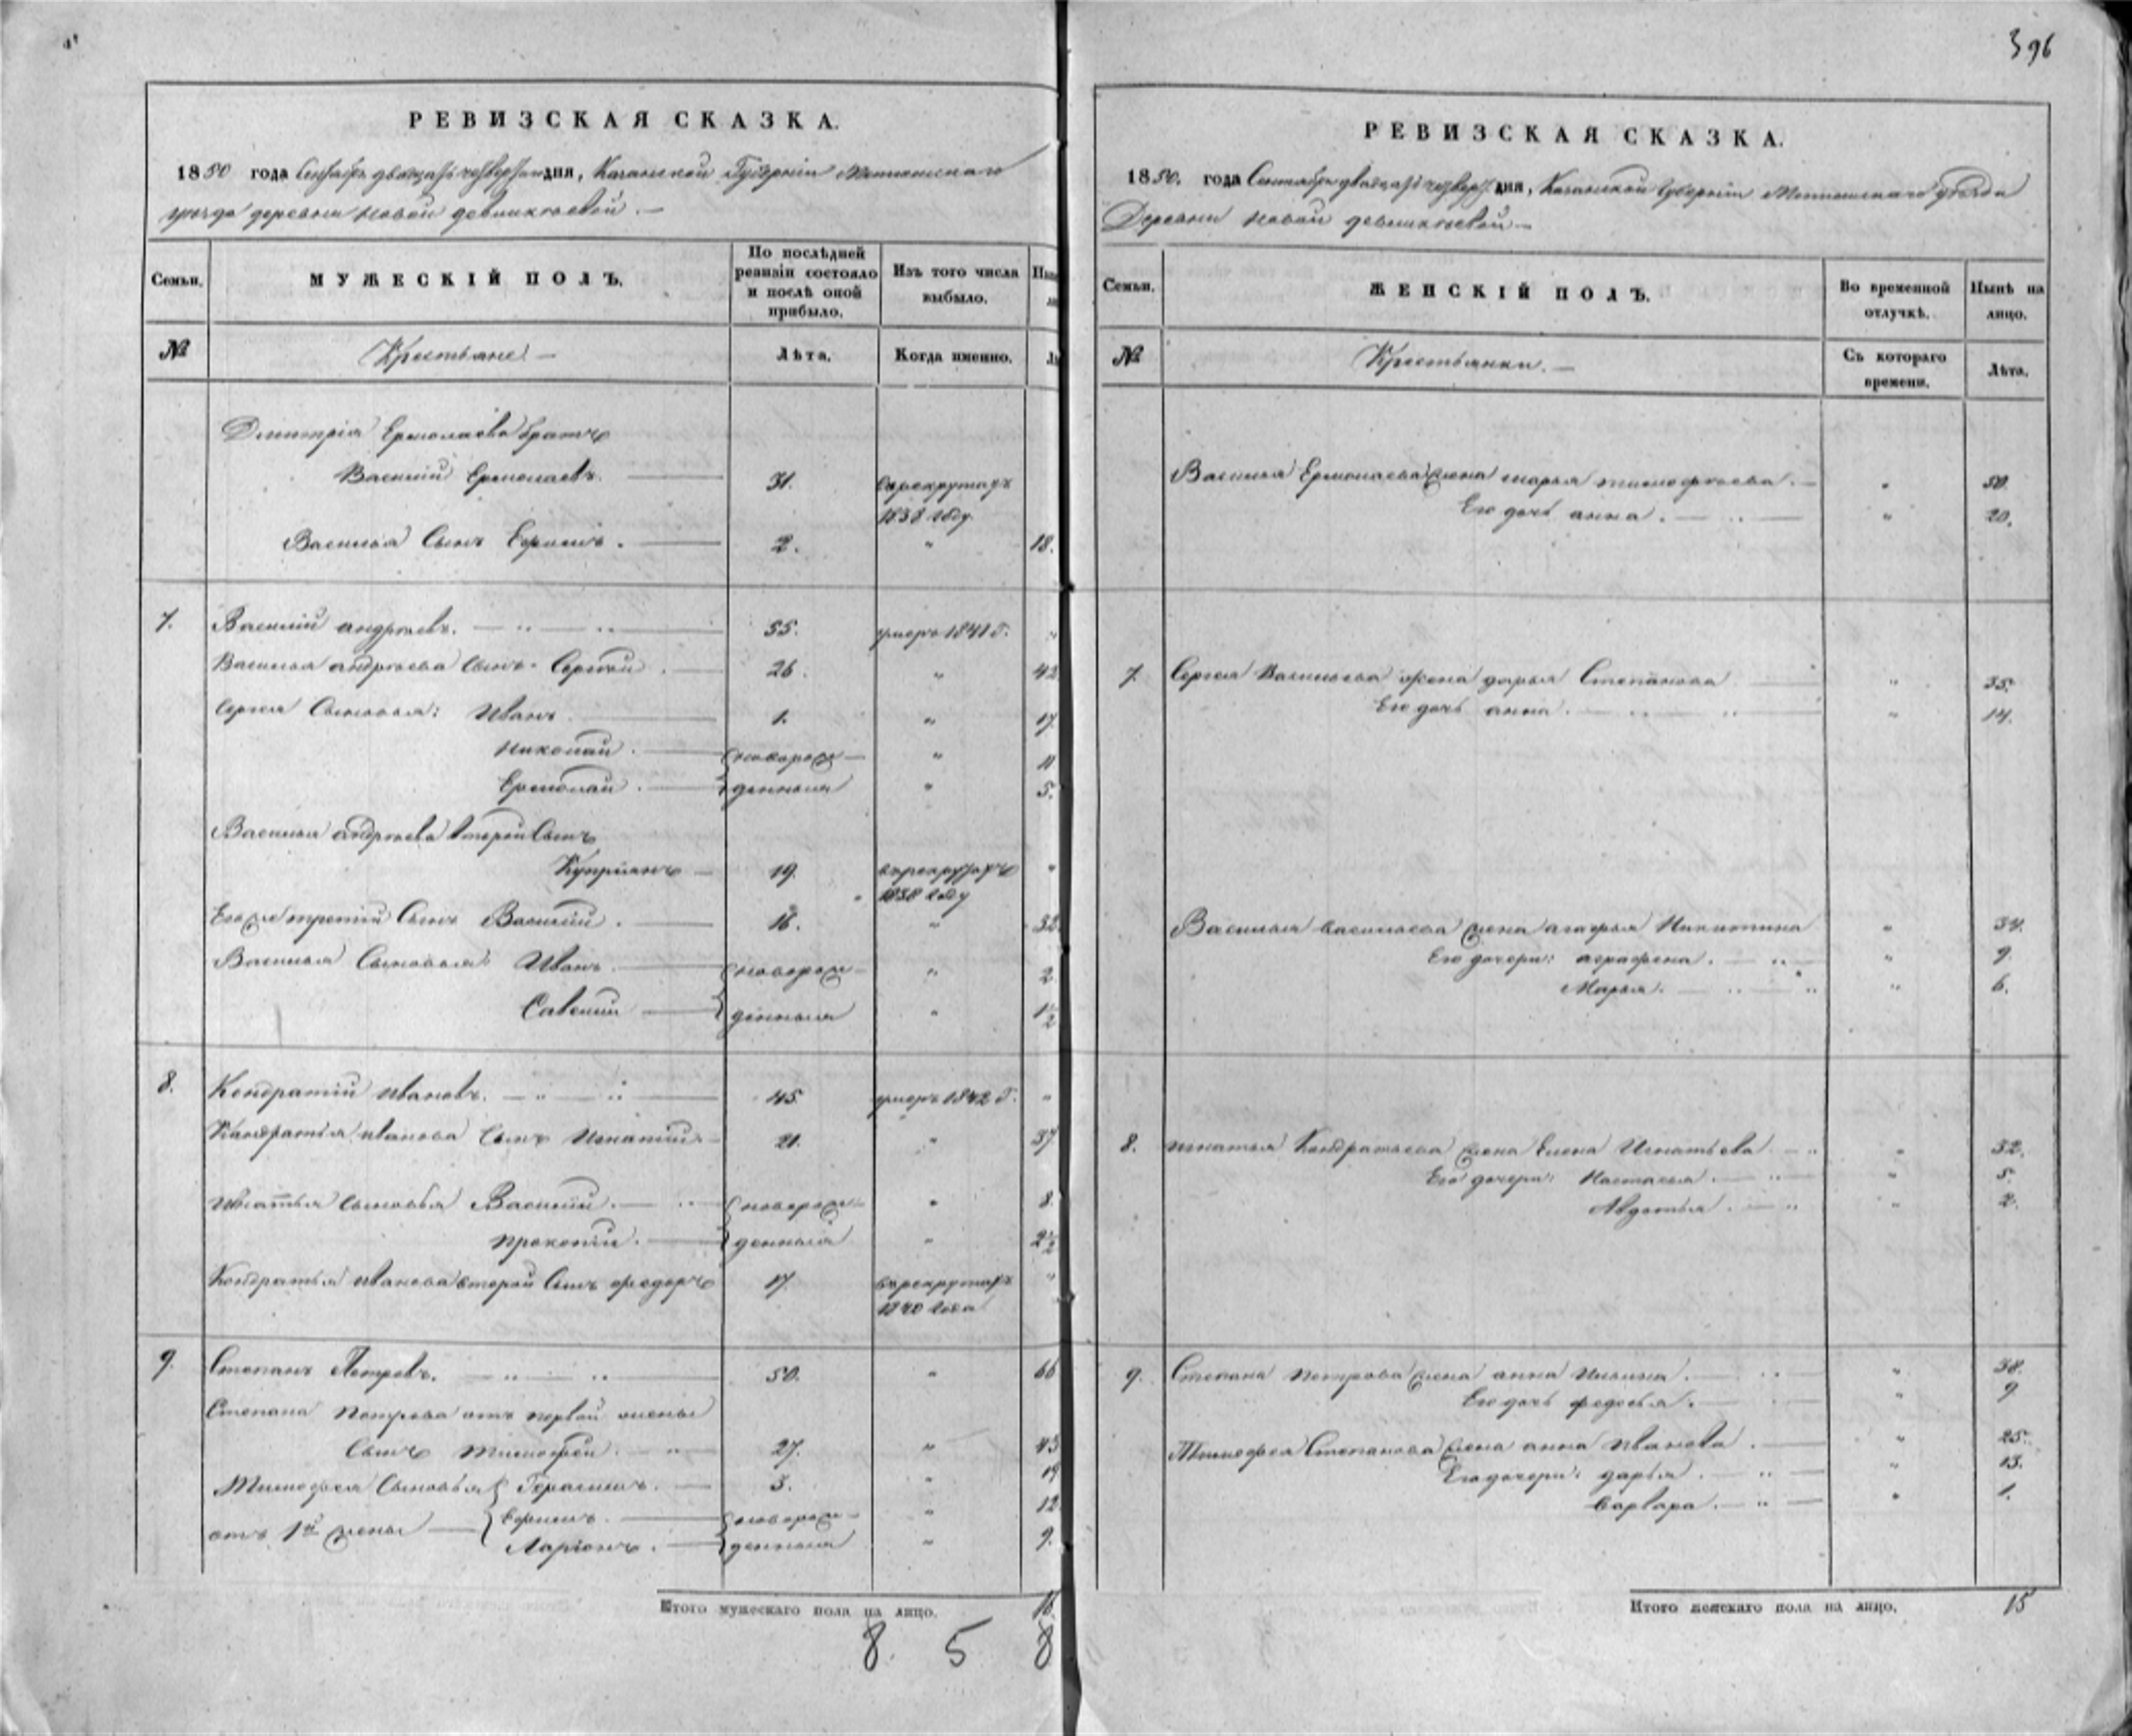 396
РЕВИЗСКАЯ СКАЗКА.
1850 года Сентября двадцать четвертаго дня, Казанской Губернiи Мамышскаго
уѣзда деревни Новой
Семьи.
МУЖЕСКIЙ ПОЛЪ.
По послѣдней ревизiи состояло и послѣ оной прибыло.
Изъ того числа выбыло.
№
Крестьяне
Лѣта.
Когда именно.
Дмитрiя Ермолаева братъ
Василiй Ермолаевъ. 31. въ рекрутахъ
1838 году
Василья Сынъ Ефимъ. 2. " 18.
7. Василiй андреевъ. 55. умеръ 1841 г. "
Василья андреева сынъ Сергѣй 26. " 42
Сергея Сыновья: Иванъ 1. " 17.
Николай. новорож- " 11
Ермолай. денныя " 5.
Василья андреева второй Сынъ
Купрiянъ 19. въ рекрутахъ "
1838 году
Его же третiй Сынъ Василiй. 16. " 32
Василья Сыновья Иванъ новорож- " 2
Савелiй денныя " 1½
8. Кондратiй Ивановъ. 45 умеръ 1842 г. "
Кондратья иванова Сынъ Игнатiй 21. " 37
Игнатья сыновья Василiй. новорож- " 8.
Прокопiй. денныя " 2½
Кондратья иванова второй Сынъ федоръ 17. въ рекрутахъ "
1840 года
9. Степанъ Петровъ. 50. " 66
Степана Петрова отъ первой жены
Сынъ Тимофей. 27. " 43
Тимофея Сыновья Герасимъ. 3. " 19
отъ 1й жены Ефимъ. новорож- " 12
Ларiонъ. денныя " 9.
Итого мужескаго пола на лицо. 16.
8. 5 8
РЕВИЗСКАЯ СКАЗКА.
1850. года Сентября двадцать четверт. дня, Казанской Губернiи Мамышскаго уѣзда
Деревни Новой
Семьи.
ЖЕНСКIЙ ПОЛЪ.
Во временной отлучкѣ.
Нынѣ на лицо.
№
Крестьянки.
Съ котораго времени.
Лѣта.
Василья Ермолаева жена марья тимофеева. " 50.
Его дочь анна. " 20.
7. Сергея Васильева жена дарья Степанова " 35.
Его дочь анна. " 14.
Василья васильева жена агафья Никитина " 34.
Его дочери: аграфена. " 9.
Марья. " 6.
8. Игнатья Кондратьева жена Елена Игнатьева " 32.
Его дочери: Настасья. " 5.
Авдотья. " 2.
9. Степана Петрова жена анна Ильина. " 38.
Его дочь федосья. " 9
Тимофея Степанова жена анна Иванова. " 25.
Его дочери: дарья. " 13.
варвара. " 1.
Итого женскаго пола на лицо. 15